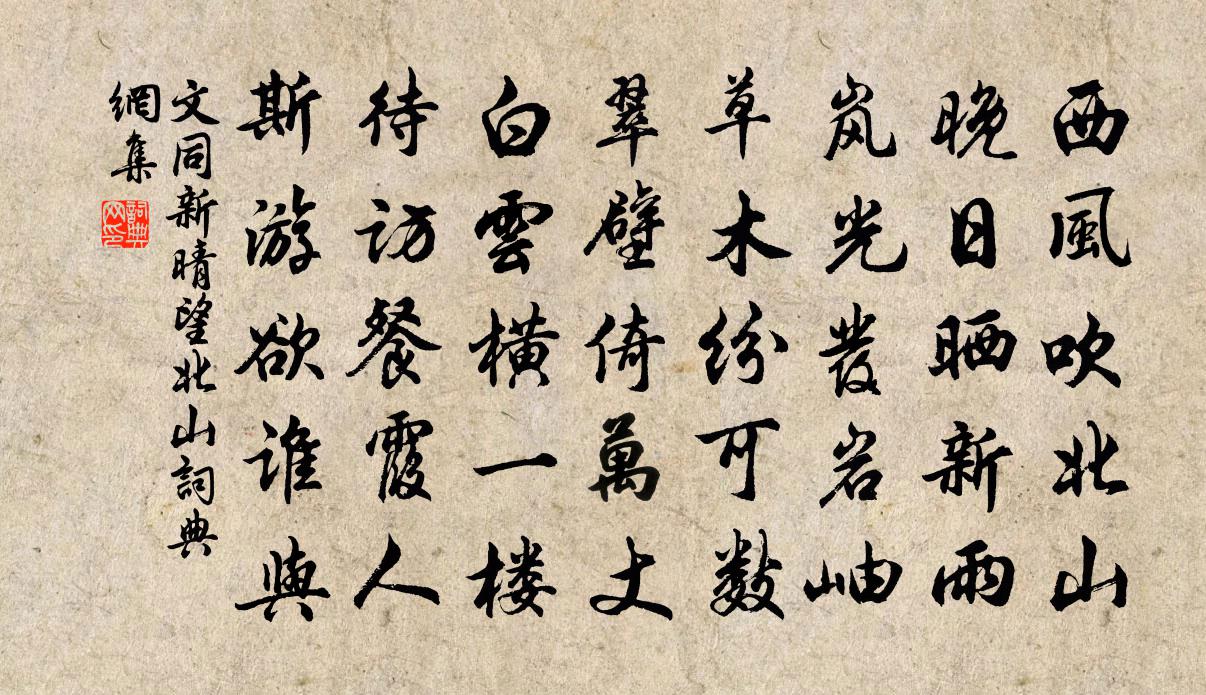 西風吹北山
晚日晒新雨
岚光發岩岫
草木紛可數
翠壁倚萬丈
白雲橫一楼
待访餐霞人
斯游欲谁與
文同新晴望北山詞典
網集
詞典
网印